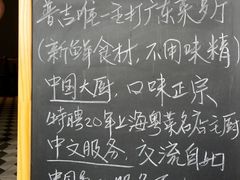 普吉唯一主打广东菜餐厅
(新鲜食材,不用味精)
中国大厨,口味正宗
特聘20年上海粤菜名店主厨
中文服务,交流自如
中国